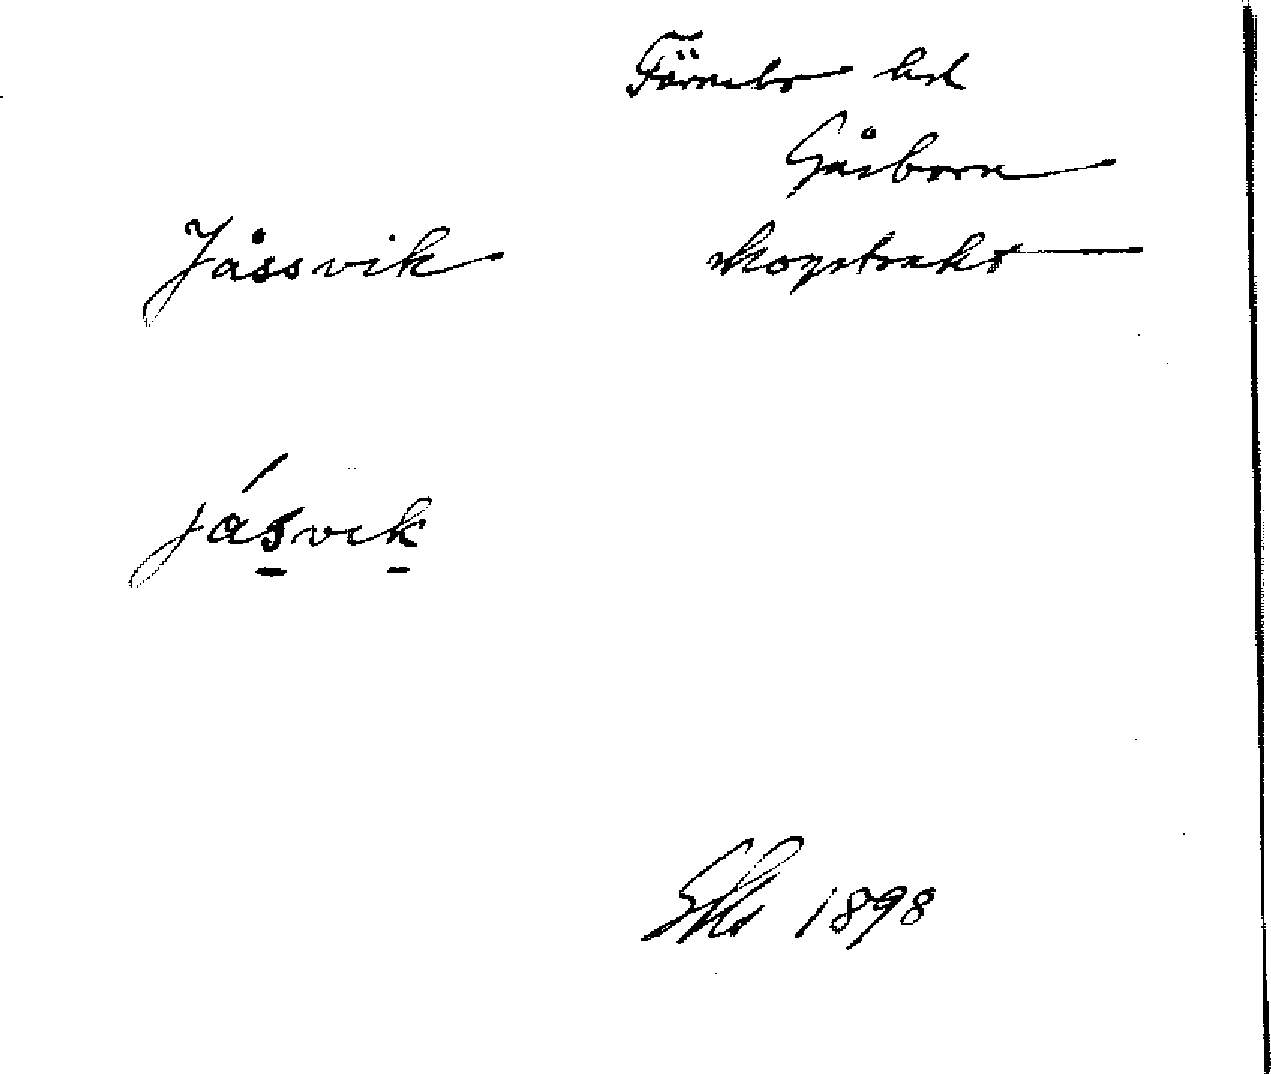 Färnebo hd
Gåsborn
Jåssvik skogstrakt
jásvik
1898